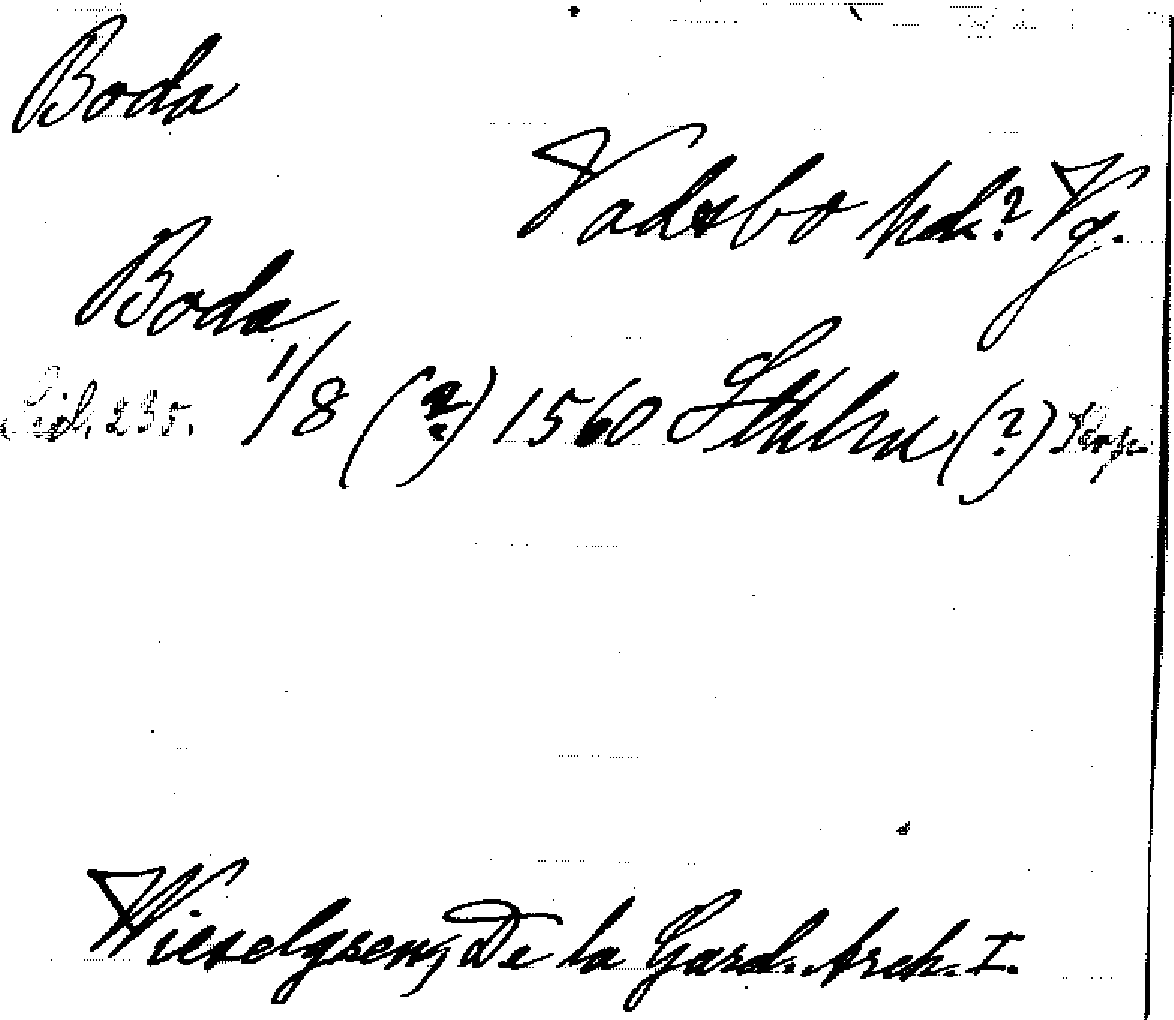 Boda
Vadsbo hd.? Vg.
Boda
Sid. 235. 1/8 (?) 1560 Sthlm (?) Kop.
Wieselgren, De la Gard. Arch. I.